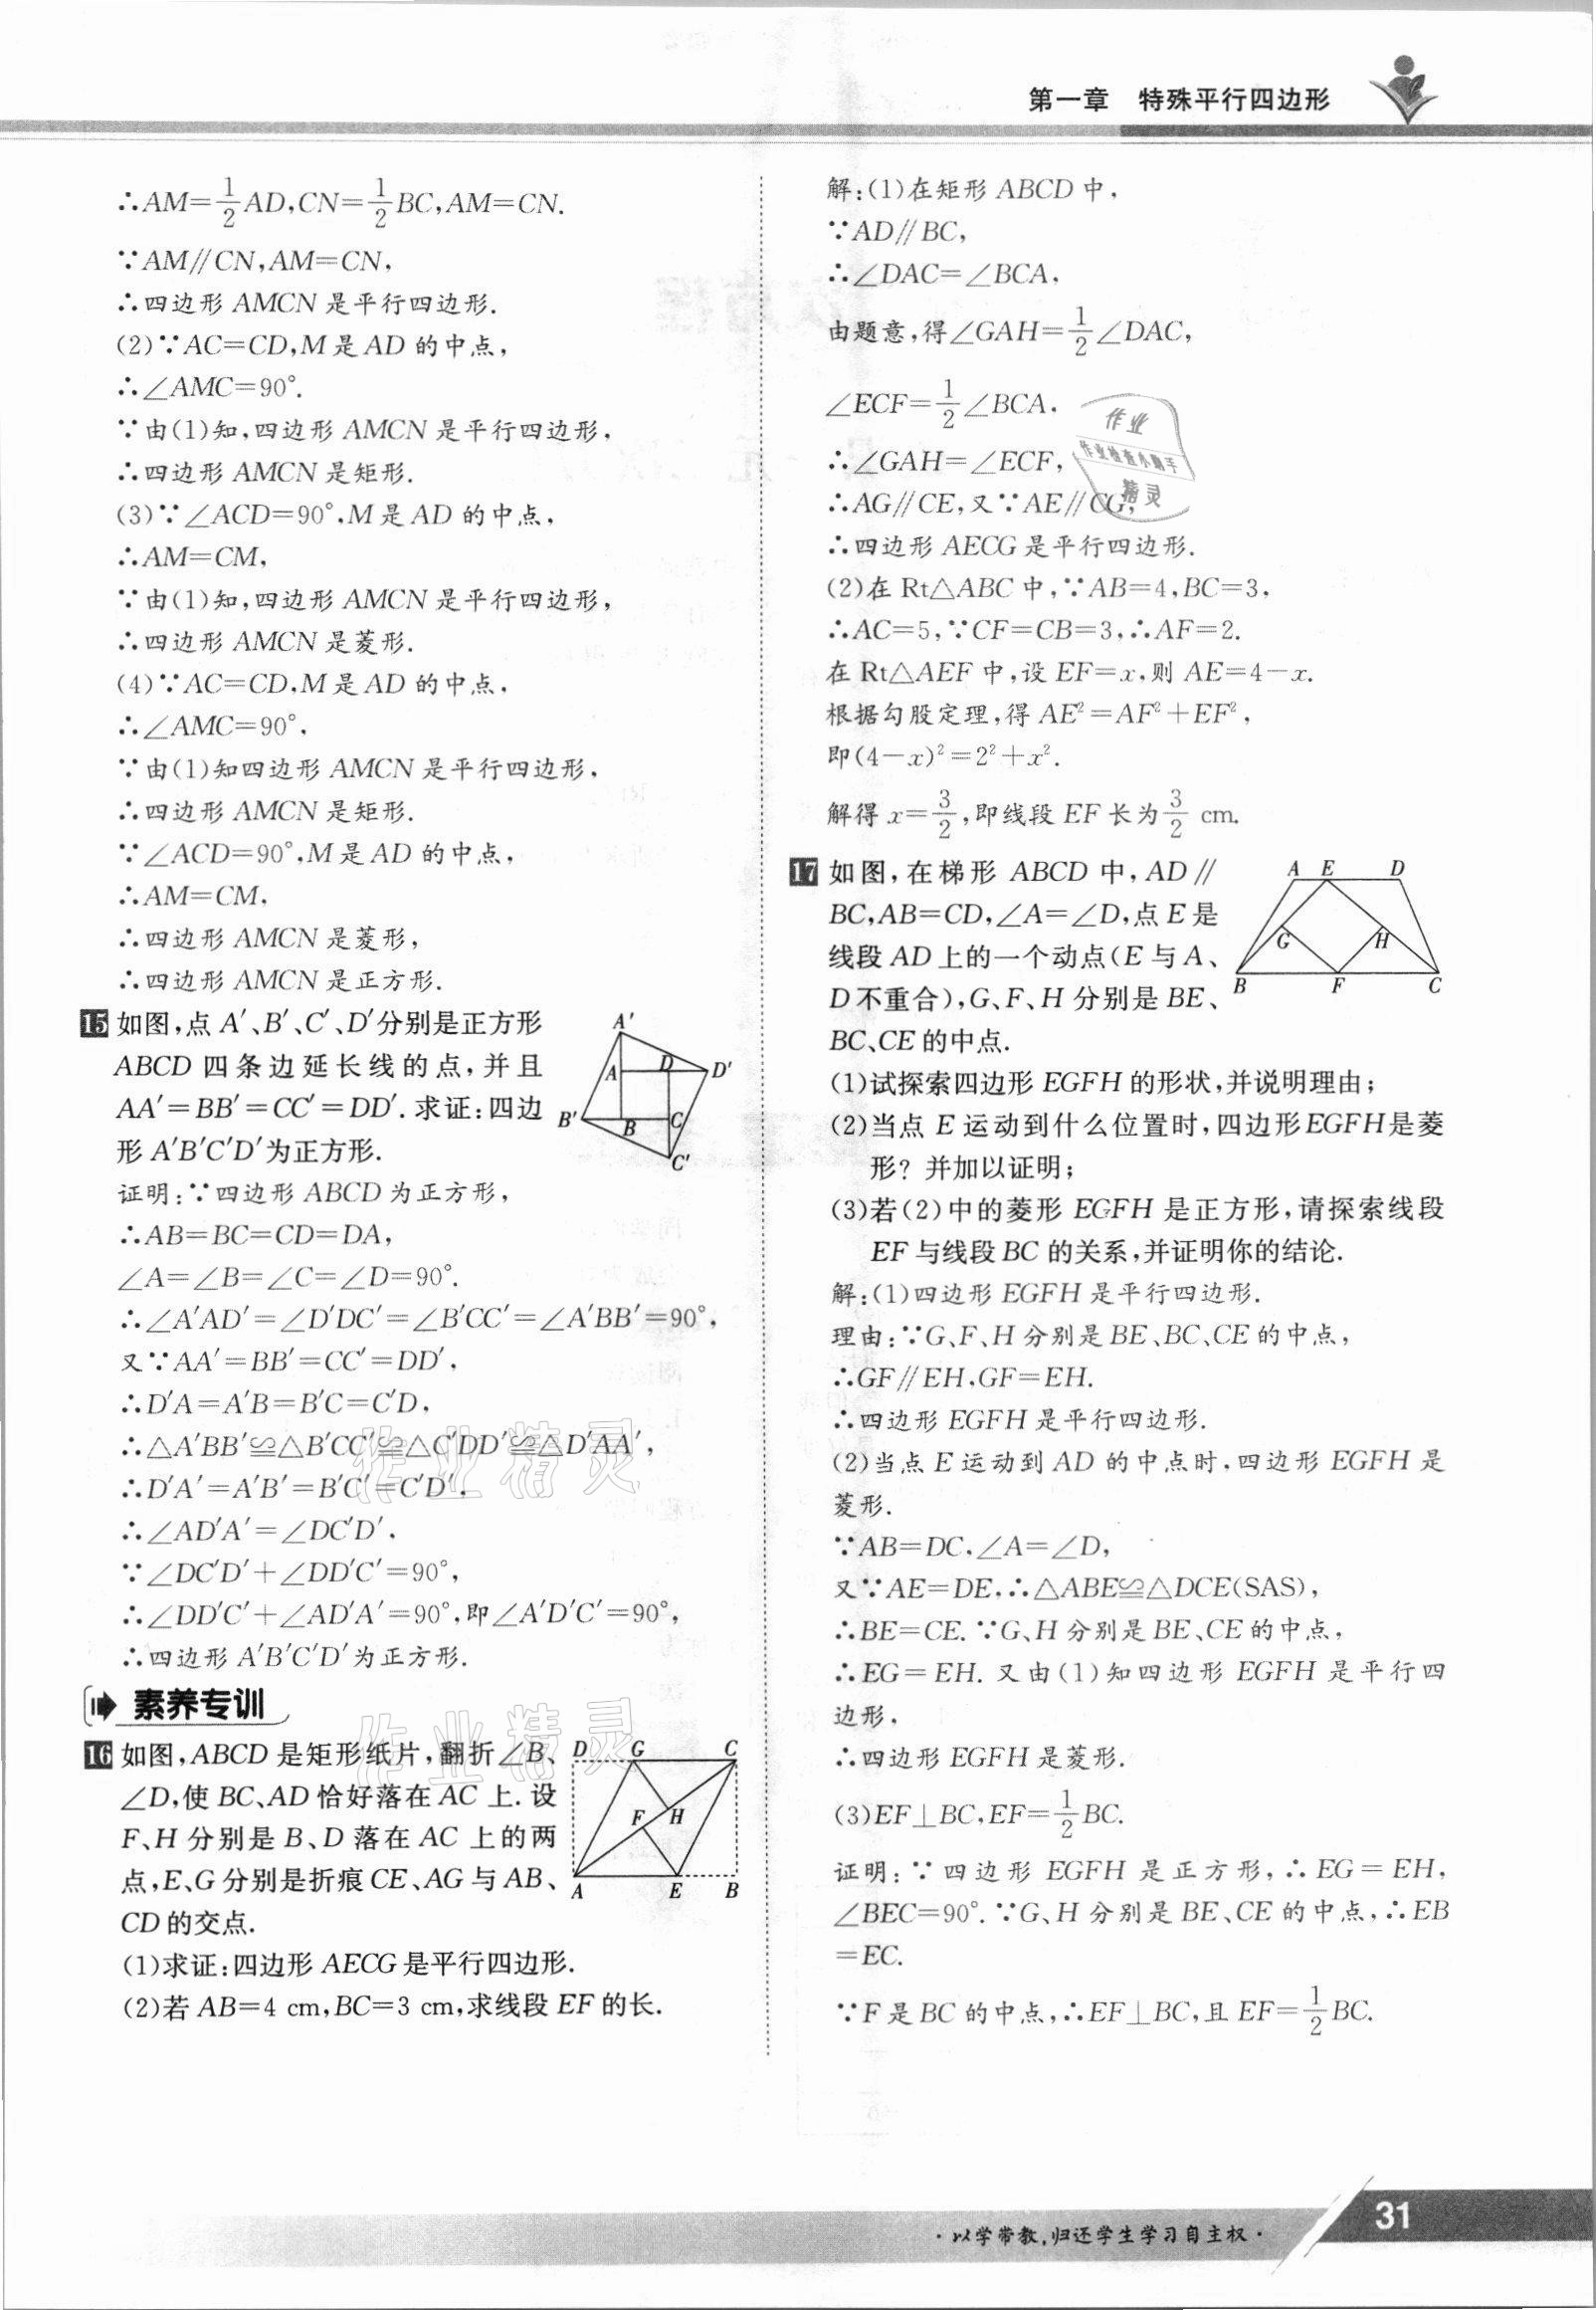 第一章 特殊平行四边形
∴AM=1/2 AD,CN=1/2 BC,AM=CN.
∵AM∥CN,AM=CN,
∴四边形 AMCN 是平行四边形.
(2)∵AC=CD,M是AD的中点,
∴∠AMC=90°.
∵由(1)知,四边形AMCN是平行四边形,
∴四边形 AMCN 是矩形.
(3)∵∠ACD=90°,M是AD的中点,
∴AM=CM,
∵由(1)知,四边形AMCN是平行四边形,
∴四边形 AMCN 是菱形.
(4)∵AC=CD,M是AD的中点,
∴∠AMC=90°,
∵由(1)知四边形AMCN是平行四边形,
∴四边形 AMCN 是矩形.
∵∠ACD=90°,M是AD的中点,
∴AM=CM,
∴四边形 AMCN 是菱形,
∴四边形 AMCN 是正方形.
15 如图,点A′、B′、C′、D′分别是正方形
ABCD 四条边延长线的点,并且
AA′=BB′=CC′=DD′.求证:四边
形 A′B′C′D′为正方形.
A′
A
D
D′
B′
B
C
C′
证明:∵四边形ABCD为正方形,
∴AB=BC=CD=DA,
∠A=∠B=∠C=∠D=90°.
∴∠A′AD′=∠D′DC′=∠B′CC′=∠A′BB′=90°,
又∵AA′=BB′=CC′=DD′,
∴D′A=A′B=B′C=C′D,
∴△A′BB′≌△B′CC′≌△C′DD′≌△D′AA′,
∴D′A′=A′B′=B′C′=C′D′,
∴∠AD′A′=∠DC′D′,
∵∠DC′D′+∠DD′C′=90°,
∴∠DD′C′+∠AD′A′=90°,即∠A′D′C′=90°,
∴四边形A′B′C′D′为正方形.
素养专训
16 如图,ABCD是矩形纸片,翻折∠B、
∠D,使BC、AD恰好落在AC上.设
F、H分别是B、D落在AC上的两
点,E、G分别是折痕CE、AG与AB、
CD的交点.
D G C
F H
A E B
(1)求证:四边形AECG是平行四边形.
(2)若AB=4 cm,BC=3 cm,求线段EF的长.
解:(1)在矩形ABCD中,
∵AD∥BC,
∴∠DAC=∠BCA,
由题意,得∠GAH=1/2∠DAC,
∠ECF=1/2∠BCA,
∴∠GAH=∠ECF,
∴AG∥CE,又∵AE∥CG,
∴四边形AECG是平行四边形.
(2)在Rt△ABC中,∵AB=4,BC=3,
∴AC=5,∵CF=CB=3,∴AF=2.
在Rt△AEF中,设EF=x,则AE=4−x.
根据勾股定理,得AE²=AF²+EF²,
即(4−x)²=2²+x².
解得x=3/2,即线段EF长为3/2 cm.
17 如图,在梯形ABCD中,AD∥
BC,AB=CD,∠A=∠D,点E是
线段AD上的一个动点(E与A、
D不重合),G、F、H分别是BE、
BC、CE的中点.
A E D
G H
B F C
(1)试探索四边形EGFH的形状,并说明理由;
(2)当点E运动到什么位置时,四边形EGFH是菱
形?并加以证明;
(3)若(2)中的菱形EGFH是正方形,请探索线段
EF与线段BC的关系,并证明你的结论.
解:(1)四边形EGFH是平行四边形.
理由:∵G、F、H分别是BE、BC、CE的中点,
∴GF∥EH,GF=EH.
∴四边形EGFH是平行四边形.
(2)当点E运动到AD的中点时,四边形EGFH是
菱形.
∵AB=DC,∠A=∠D,
又∵AE=DE,∴△ABE≌△DCE(SAS),
∴BE=CE.∵G、H分别是BE、CE的中点,
∴EG=EH.又由(1)知四边形EGFH是平行四
边形,
∴四边形EGFH是菱形.
(3)EF⊥BC,EF=1/2 BC.
证明:∵四边形EGFH是正方形,∴EG=EH,
∠BEC=90°.∵G、H分别是BE、CE的中点,∴EB
=EC.
∵F是BC的中点,∴EF⊥BC,且EF=1/2 BC.
作业
作业检查小助手
精灵
作业精灵
作业精灵
·以学带教,归还学生学习自主权·
31